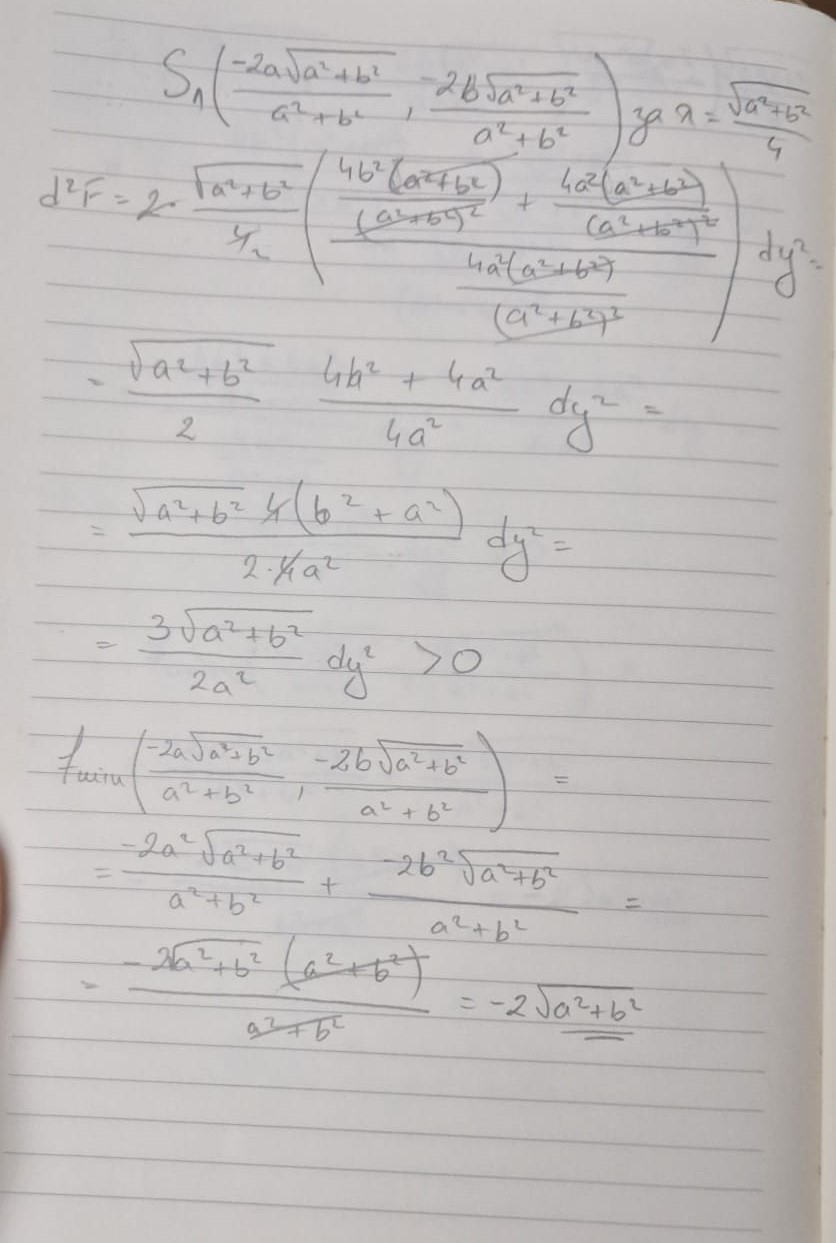 S₁(-2a√(a²+b²)/(a²+b²), -2b√(a²+b²)/(a²+b²)) за λ = √(a²+b²)/4
d²F = 2·√(a²+b²)/4₂ ((4b²(a²+b²)/(a²+b²)² + 4a²(a²+b²)/(a²+b²)²)/(4a²(a²+b²)/(a²+b²)²)) dy² =
= √(a²+b²)/2 (4b² + 4a²)/4a² dy² =
= √(a²+b²) 4(b² + a²)/(2·4a²) dy² =
= 3√(a²+b²)/2a² dy² > 0
fmin(-2a√(a²+b²)/(a²+b²), -2b√(a²+b²)/(a²+b²)) =
= -2a²√(a²+b²)/(a²+b²) + -2b²√(a²+b²)/(a²+b²) =
= -2√(a²+b²) (a²+b²)/(a²+b²) = -2√(a²+b²)